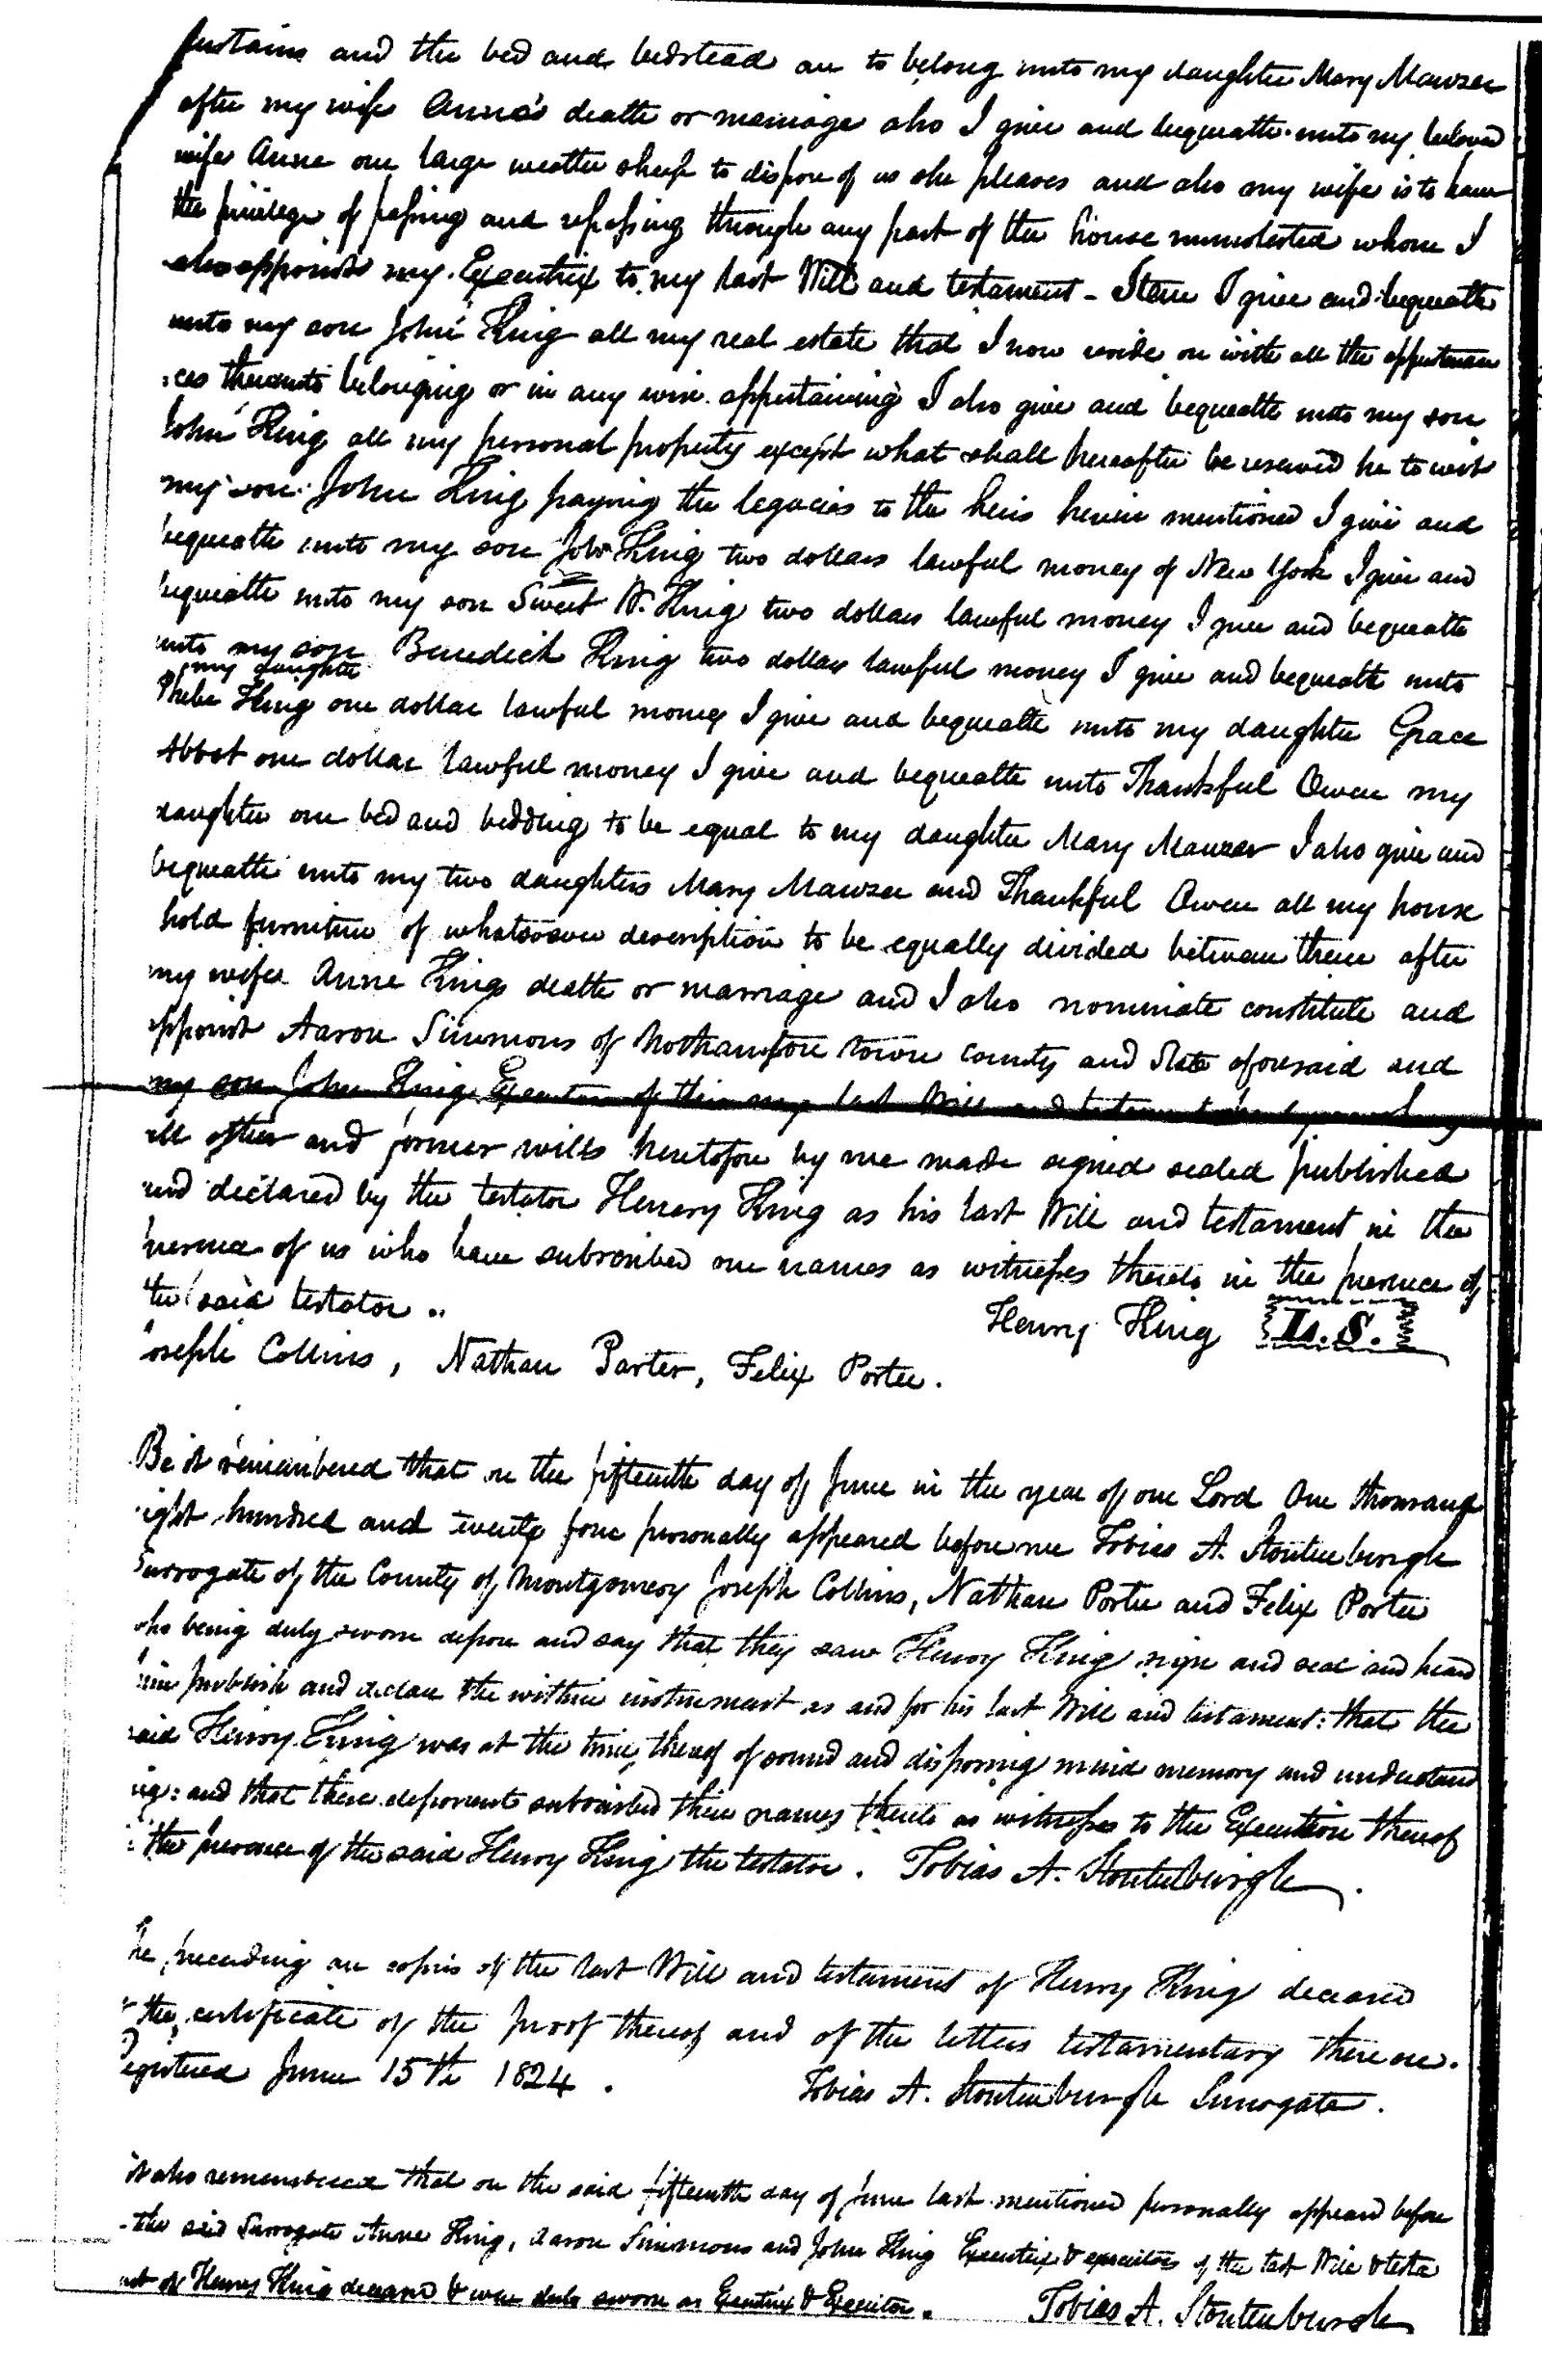 curtains and the bed and bedstead are to belong unto my daughter Mary Mawzer
after my wife Anna's death or marriage also I give and bequeath unto my beloved
wife Anne one large weather sheep to dispose of as she pleases and also my wife is to have
the privilege of passing and repassing through any part of the house unmolested whom I
also appoint my Executrix to my last Will and testament - Item I give and bequeath
unto my son John King all my real estate that I now reside on with all the appurtenan
:ces thereunto belonging or in any wise appertaining I also give and bequeath unto my son
John King all my personal property except what shall hereafter be reserved he to wit
my son John King paying the legacies to the heirs herein mentioned I give and
bequeath unto my son Job King two dollars lawful money of New York I give and
bequeath unto my son Sweet W. King two dollars lawful money I give and bequeath
unto my son Benedick King two dollars lawful money I give and bequeath unto
my daughter
Phebe King one dollar lawful money I give and bequeath unto my daughter Grace
Abbot one dollar lawful money I give and bequeath unto Thankful Owen my
daughter one bed and bedding to be equal to my daughter Mary Mawzer I also give and
bequeath unto my two daughters Mary Mawzer and Thankful Owen all my house
hold furniture of whatsoever description to be equally divided between them after
my wifes Anne King death or marriage and I also nominate constitute and
appoint Aaron Simmons of Northampton town county and State aforesaid and
my son John King Executors of this my last Will and testament
all other and former wills heretofore by me made signed sealed published
and declared by the testator Henery King as his last Will and testament in the
presence of us who have subscribed our names as witnesses thereto in the presence of
the said testator ..
Henry King L. S.
Joseph Collins, Nathan Porter, Felix Porter.
Be it remembered that on the fifteenth day of June in the year of our Lord One thousand
eight hundred and twenty four personally appeared before me Tobias A. Stoutenburgh
Surrogate of the County of Montgomery Joseph Collins, Nathan Porter and Felix Porter
who being duly sworn depose and say that they saw Henry King sign and seal and heard
him publish and declare the within instrument as and for his last Will and testament: that the
said Henry King was at the time thereof of sound and disposing mind memory and understand
ing: and that these deponents subscribed their names thereto as witnesses to the Execution thereof
in the presence of the said Henry King the testator. Tobias A. Stoutenburgh.
The preceeding are copies of the last Will and testament of Henry King deceased
of the certificate of the proof thereof and of the letters testamentary thereon.
Registered June 15th 1824.
Tobias A. Stoutenburgh Surrogate.
it also remembered that on the said fifteenth day of June last mentioned personally appeared before
the said Surrogate Anne King, Aaron Simmons and John King Executrix & executors of the last Will & testa
ment of Henry King deceased & were duly sworn as Executrix & Executors.
Tobias A. Stoutenburgh